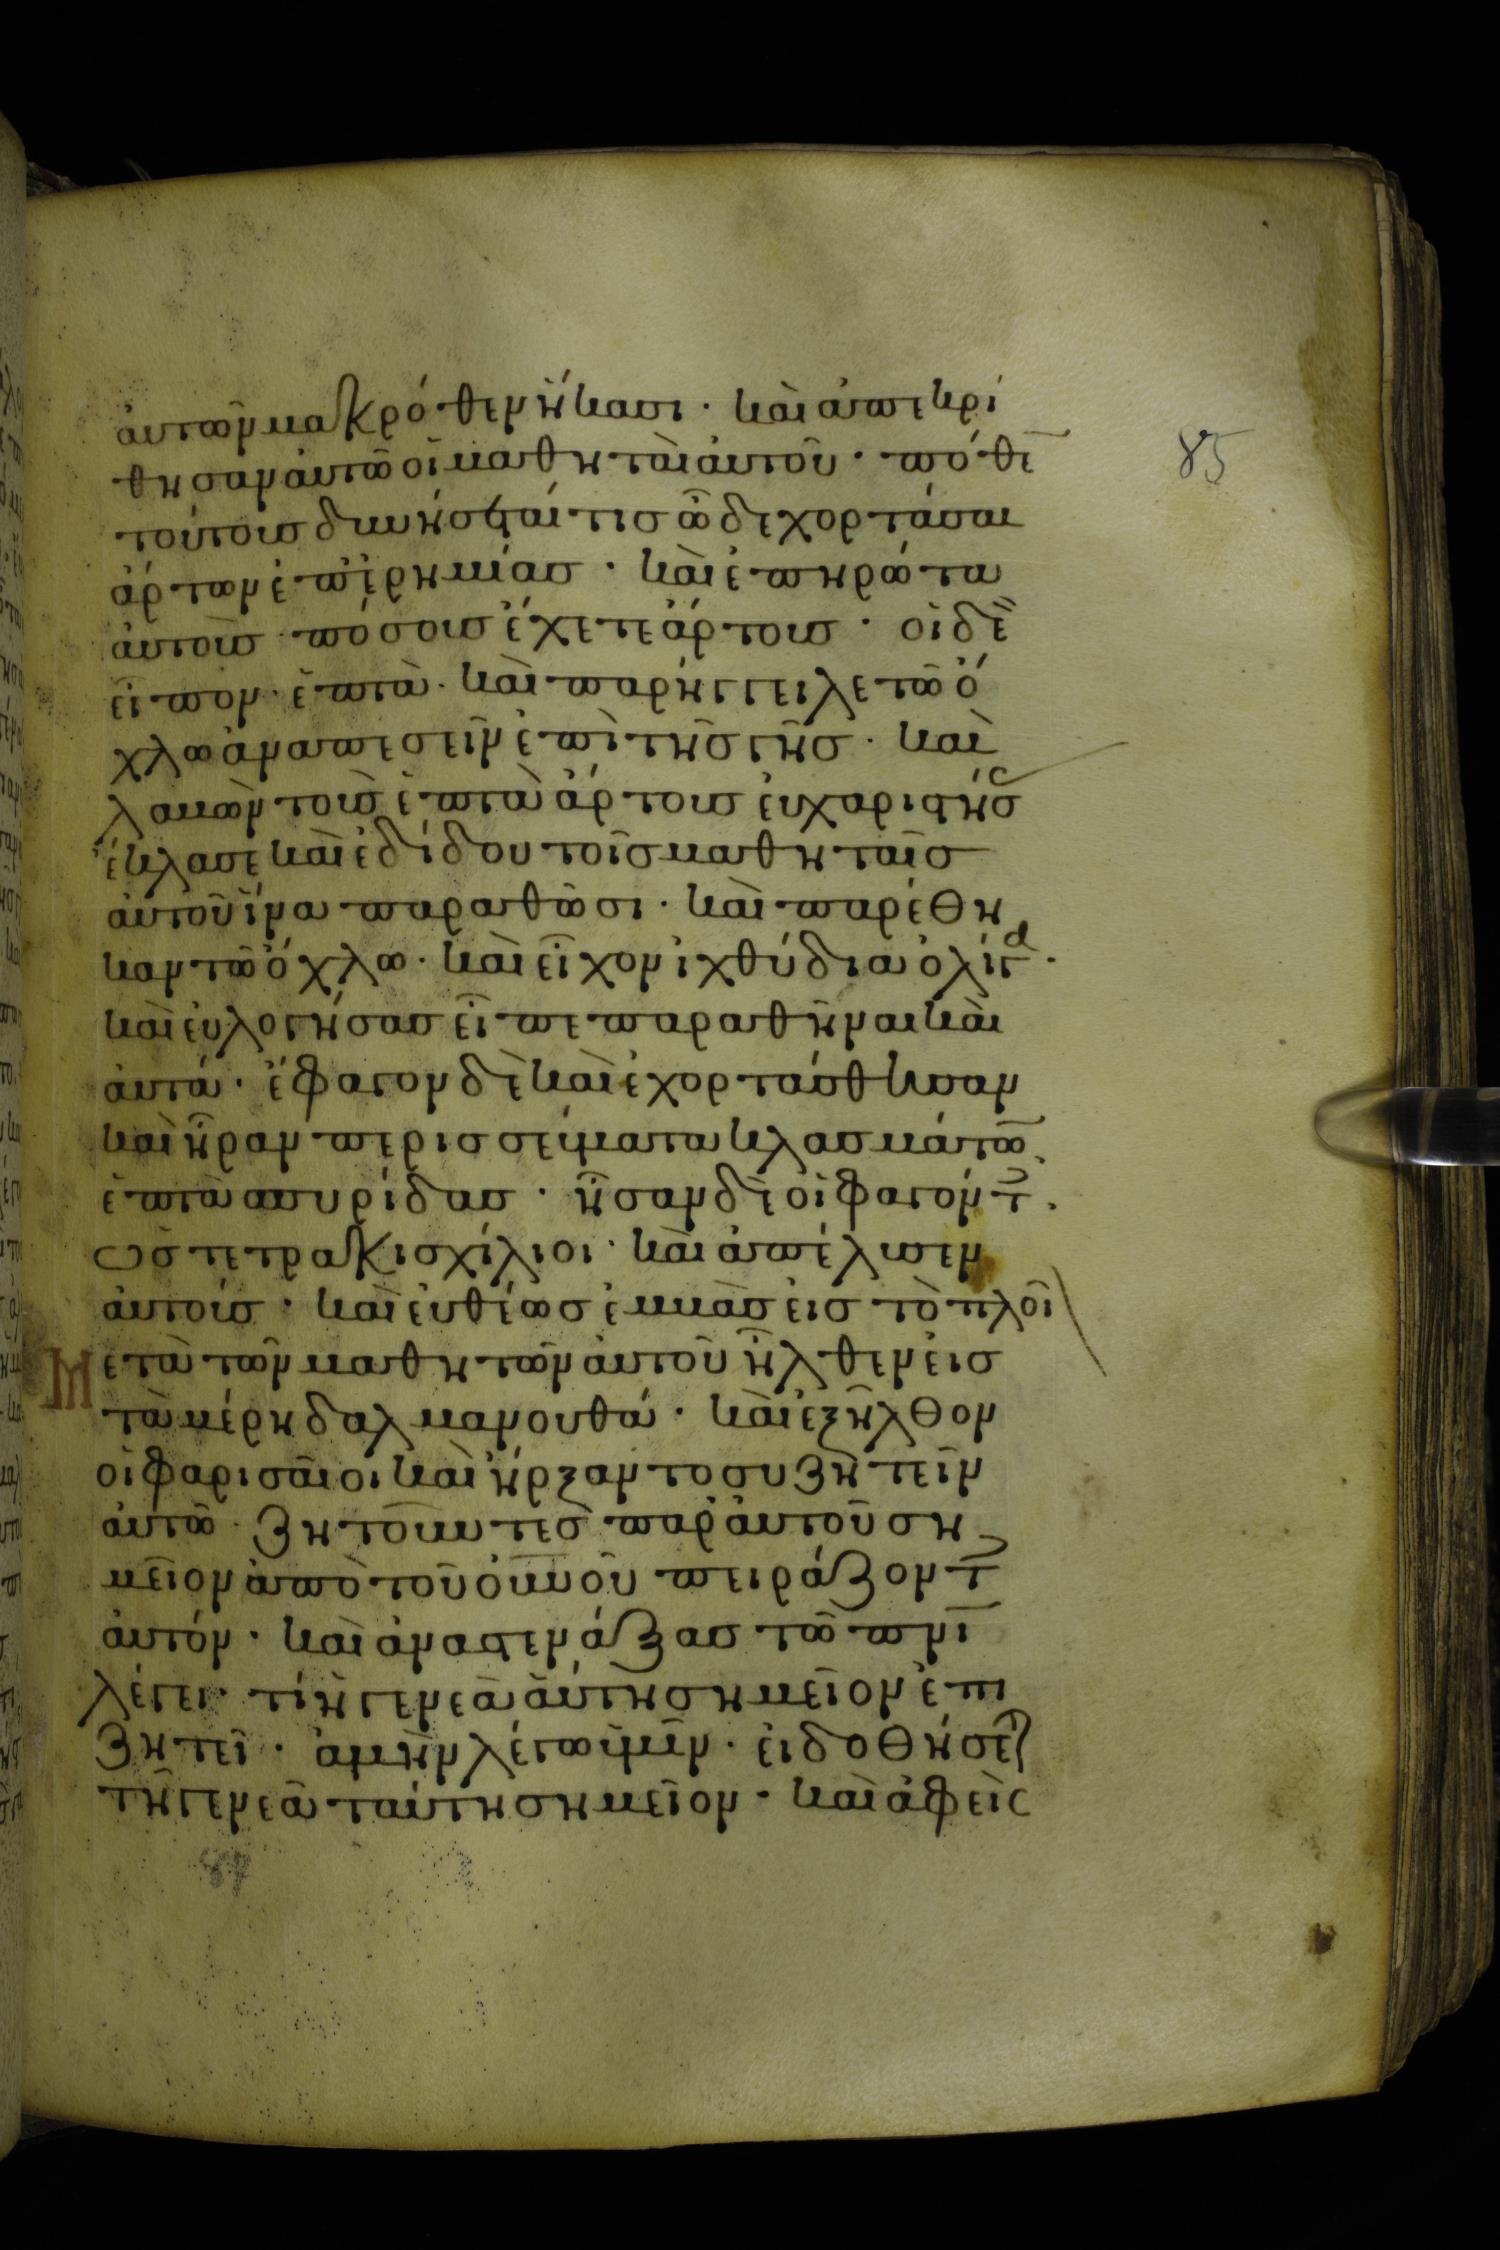 ἀυτῶν μακρόθεν ἥκασι · καὶ ἀπεκρί
θησαν ἀυτῶ οἱ μαθηταὶ ἀυτοῦ · πόθε̅
τούτους δυνήσεταί τισ ὧδε χορτάσαι
ἄρτων ἐπ ἐρημίασ · καὶ ἐπηρώτα
ἀυτοὺσ πόσουσ ἔχετε ἄρτουσ · οἱ δὲ
εἶπον · ἑπτὰ · καὶ παρήγγειλε τῶ ὄ
χλω ἀναπεσεῖν ἐπὶ τῆσ γῆσ · καὶ
λαβὼν τοὺσ ἑπτὰ ἄρτουσ ἐυχαριστήσ
ἔκλασε καὶ ἐδίδου τοῖσ μαθηταῖσ
ἀυτοῦ ἵνα παραθῶσι · καὶ παρέθη
καν τῶ ὄχλω · καὶ εἶχον ἰχθύδια ὀλίγα ·
καὶ ἐυλογήσασ εἶπε παραθῆναι καὶ
ἀυτά · ἔφαγον δὲ καὶ ἐχορτάσθησαν
καὶ ἦραν περισσεύματα κλασμάτω̅
ἑπτὰ σπυρίδασ · ἦσαν δὲ οἱ φαγόντ ·
ὡσ τετρακισχίλιοι · καὶ ἀπέλυσεν
ἀυτούσ · καὶ ἐυθέωσ ἐμβὰσ εἰσ τὸ πλοῖ
Μετὰ τῶν μαθητῶν ἀυτοῦ ἦλθεν εἰσ
τὰ μέρη δαλμανουθά · καὶ ἐξῆλθον
οἱ φαρισαῖοι καὶ ἤρξαντο συζητεῖν
ἀυτῶ · ζητοῦντεσ παρ ἀυτοῦ ση
μεῖον ἀπὸ τοῦ ὀυ̅νοῦ πειράζοντ
ἀυτόν · καὶ ἀναστενάξασ τῶ π̅νι̅
λέγει · τί ἡ γενεὰ ἅυτη σημεῖον ἐπι
ζητεῖ · ἀμὴν λέγω ὑμῖν · εἰ δοθήσε
τῆ γενεᾶ ταύτη σημεῖον · καὶ ἀφεὶς
85
84